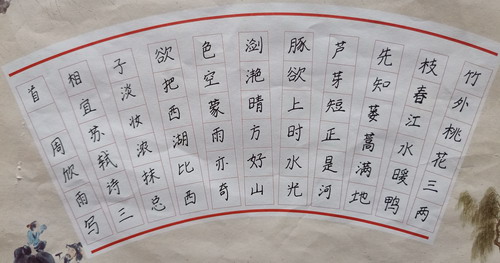 竹外桃花三两
枝春江水暖鸭
先知蒌蒿满地
芦芽短正是河
豚欲上时水光
潋滟晴方好山
色空蒙雨亦奇
欲把西湖比西
子淡妆浓抹总
相宜苏轼诗三
首 周欣雨写